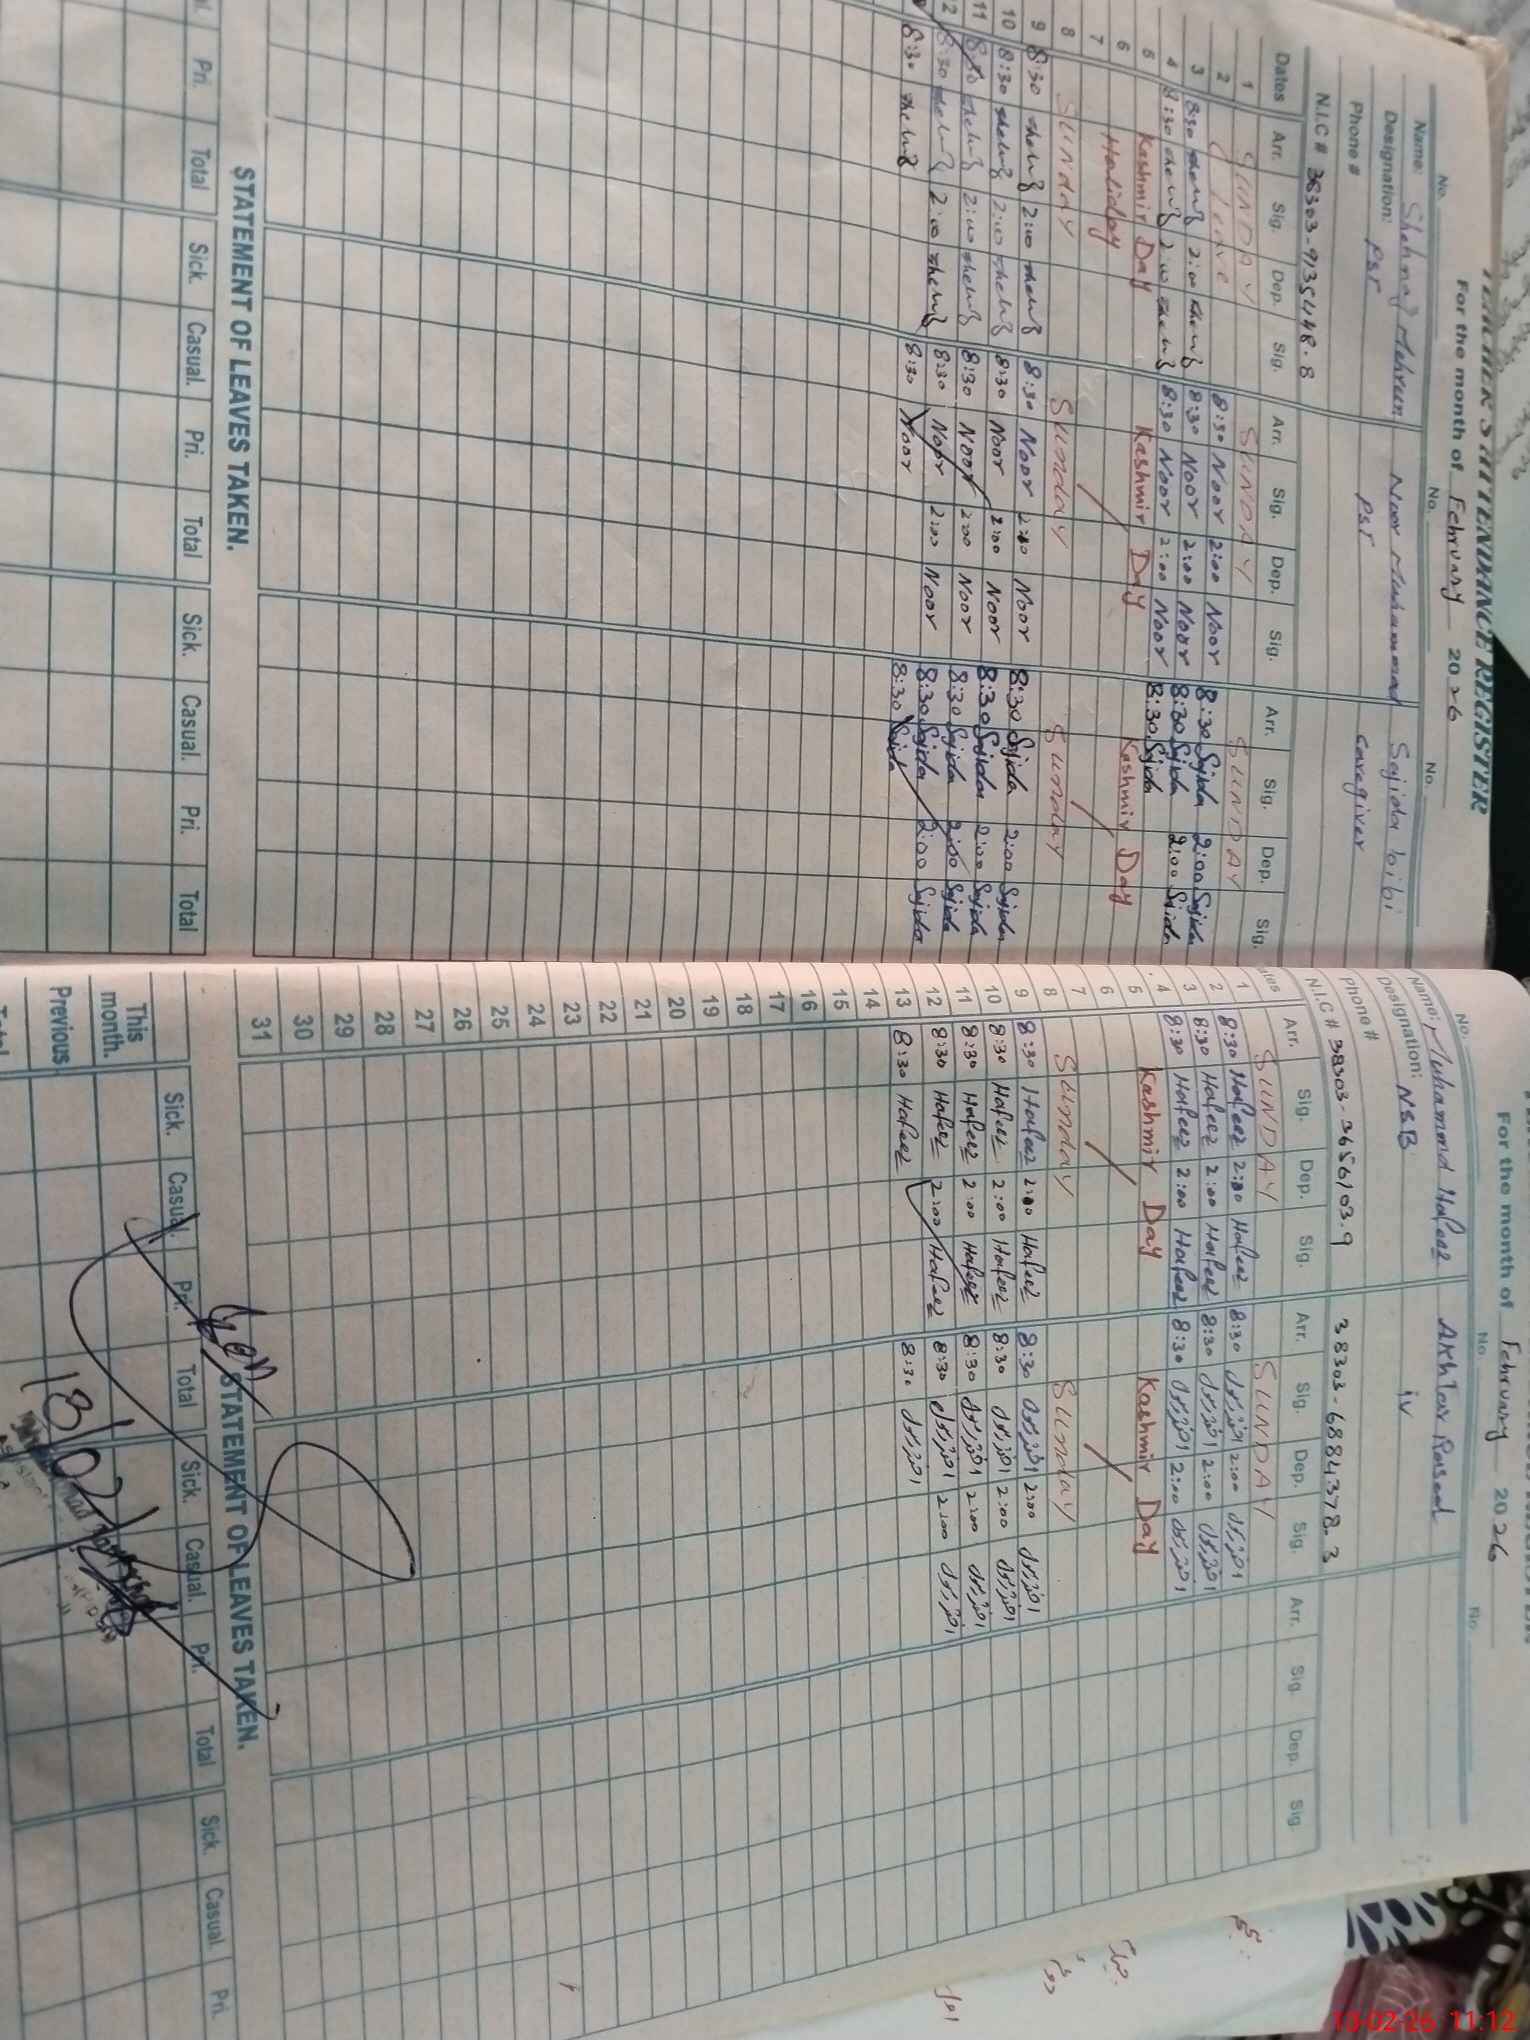 TEACHER'S ATTENDANCE REGISTER
For the month of February 2026
No. No. No.
Name: Shehnaz Mehreen Noor Muhammad Sajida bibi
Designation: PST PST Caregiver
Phone #
N.I.C # 38303-9135448-8
Dates Arr. Sig. Dep. Sig. Arr. Sig. Dep. Sig. Arr. Sig. Dep. Sig.
1 SUNDAY SUNDAY SUNDAY
2 C Leave 8:30 Noor 2:00 Noor 8:30 Sajida 2:00 Sajida
3 8:30 2:00 8:30 Noor 2:00 Noor 8:30 Sajida 2:00 Sajida
4 8:30 2:00 8:30 Noor 2:00 Noor 8:30 Sajida
5 Kashmir Day Kashmir Day Kashmir Day
6 Holiday
7
8 SUNDAY Sunday Sunday
9 8:30 2:00 8:30 Noor 2:00 Noor 8:30 Sajida 2:00 Sajida
10 8:30 2:00 8:30 Noor 2:00 Noor 8:30 Sajida 2:00 Sajida
11 8:30 2:00 8:30 Noor 2:00 Noor 8:30 Sajida 2:00 Sajida
12 8:30 2:00 8:30 Noor 2:00 Noor 8:30 Sajida 2:00 Sajida
8:30 8:30 Noor 8:30 Sajida
STATEMENT OF LEAVES TAKEN.
Pri. Total Sick. Casual. Pri. Total Sick. Casual. Pri. Total
For the month of February 2026
No. No. No.
Name: Muhammad Hafeez Akhtar Rasool
Designation: NSB iv
Phone #
N.I.C # 38303-3656103-9 38303-6884378-3
Dates Arr. Sig. Dep. Sig. Arr. Sig. Dep. Sig. Arr. Sig. Dep. Sig.
1 SUNDAY SUNDAY
2 8:30 Hafeez 2:00 Hafeez 8:30 اختر رسول 2:00 اختر رسول
3 8:30 Hafeez 2:00 Hafeez 8:30 اختر رسول 2:00 اختر رسول
4 8:30 Hafeez 2:00 Hafeez 8:30 اختر رسول 2:00 اختر رسول
5 Kashmir Day Kashmir Day
6
7
8 Sunday Sunday
9 8:30 Hafeez 2:00 Hafeez 8:30 اختر رسول 2:00 اختر رسول
10 8:30 Hafeez 2:00 Hafeez 8:30 اختر رسول 2:00 اختر رسول
11 8:30 Hafeez 2:00 Hafeez 8:30 اختر رسول 2:00 اختر رسول
12 8:30 Hafeez 2:00 Hafeez 8:30 اختر رسول 2:00 اختر رسول
13 8:30 Hafeez 8:30 اختر رسول
14
15
16
17
18
19
20
21
22
23
24
25
26
27
28
29
30
31
STATEMENT OF LEAVES TAKEN.
Sick. Casual. Pri. Total Sick. Casual. Pri. Total Sick. Casual. Pri.
This month.
Previous
Total
13-02-26 11:12